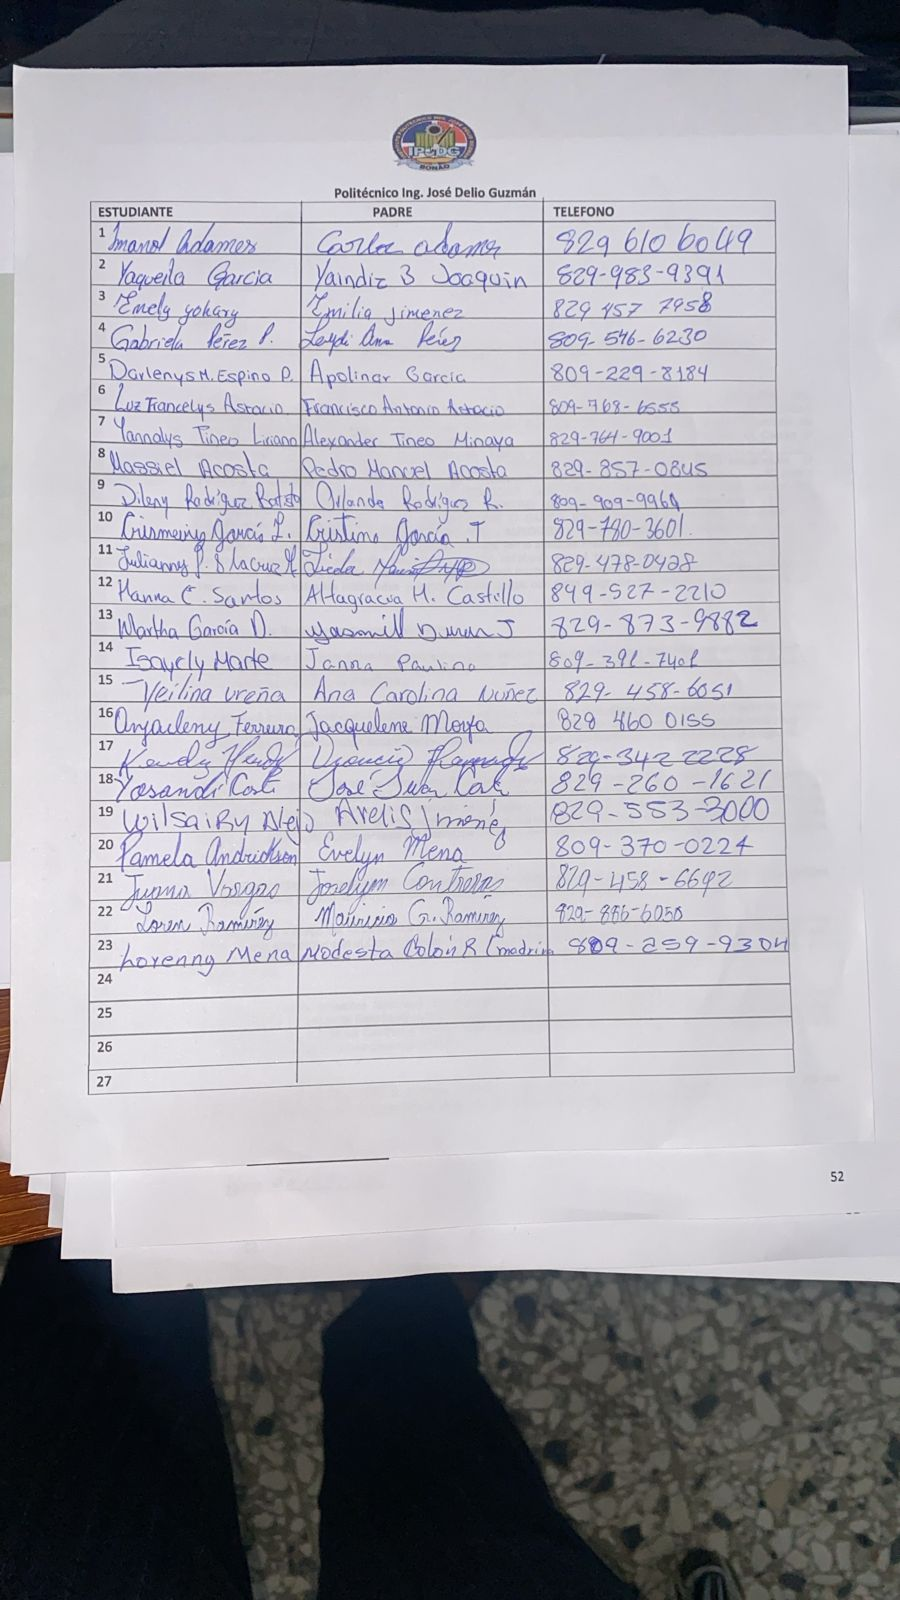 IPJDG
BONAO
Politécnico Ing. José Delio Guzmán
ESTUDIANTE PADRE TELEFONO
1 Imanol Adames Carlos adames 829 610 6049
2 Yaqueila Garcia Yaindiz B Joaquin 829-983-9391
3 Emely yokary Emilia jimenez 829 457 7958
4 Gabriela Pérez P. Leydi Ana Pérez 809-546-6230
5 Darlenys M. Espino P. Apolinar Garcia 809-229-8184
6 Luz Francelys Astacio Francisco Antonio Astacio 809-768-6555
7 Yannalys Tineo Liriano Alexander Tineo Minaya 829-764-9001
8 Massiel Acosta Pedro Manuel Acosta 829-857-0845
9 Dileny Rodríguez Batista Orlando Rodríguez R. 809-909-9964
10 Crismeiry García L. Cristino García J 829-780-3601
11 Julianny 829-478-0428
12 Hanna C. Santos Altagracia H. Castillo 849-527-2210
13 Martha García D. Yasmill Duran J 829-873-9882
14 Isayely Marte Janna Paulino 809-391-7401
15 Yeilina Ureña Ana Carolina Núñez 829-458-6051
16 Anyaeleny Ferreira Jacquelene Morfa 829 460 0155
17 829-342 2228
18 Yosandi José Juan 829-260-1621
19 Wilsairy Alejo Arelis jiménez 829-553-3000
20 Pamela Andrickson Evelyn Mena 809-370-0224
21 Juana Vargas Joselym Contreras 829-458-6692
22 Loren Ramírez Mauricio G. Ramírez 829-886-6050
23 Lorenny Mena Modesta Colón R (madrina 809-259-9304
24
25
26
27
52